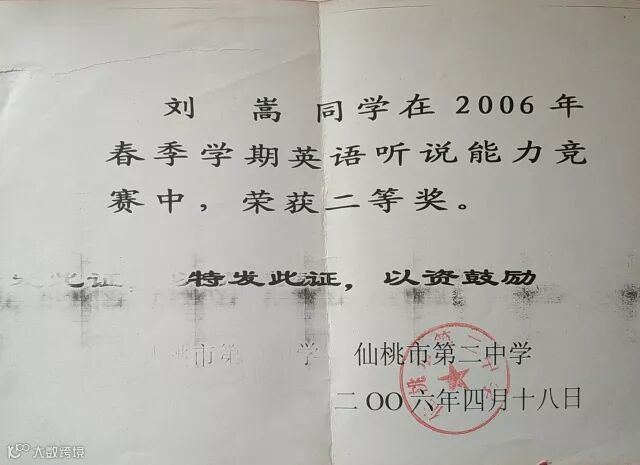 刘 嵩 同学在 2006 年
春季学期英语听说能力竞
赛中，荣获二等奖。
特发此证，以资鼓励
仙桃市第二中学
二OO六年四月十八日
大数跨境